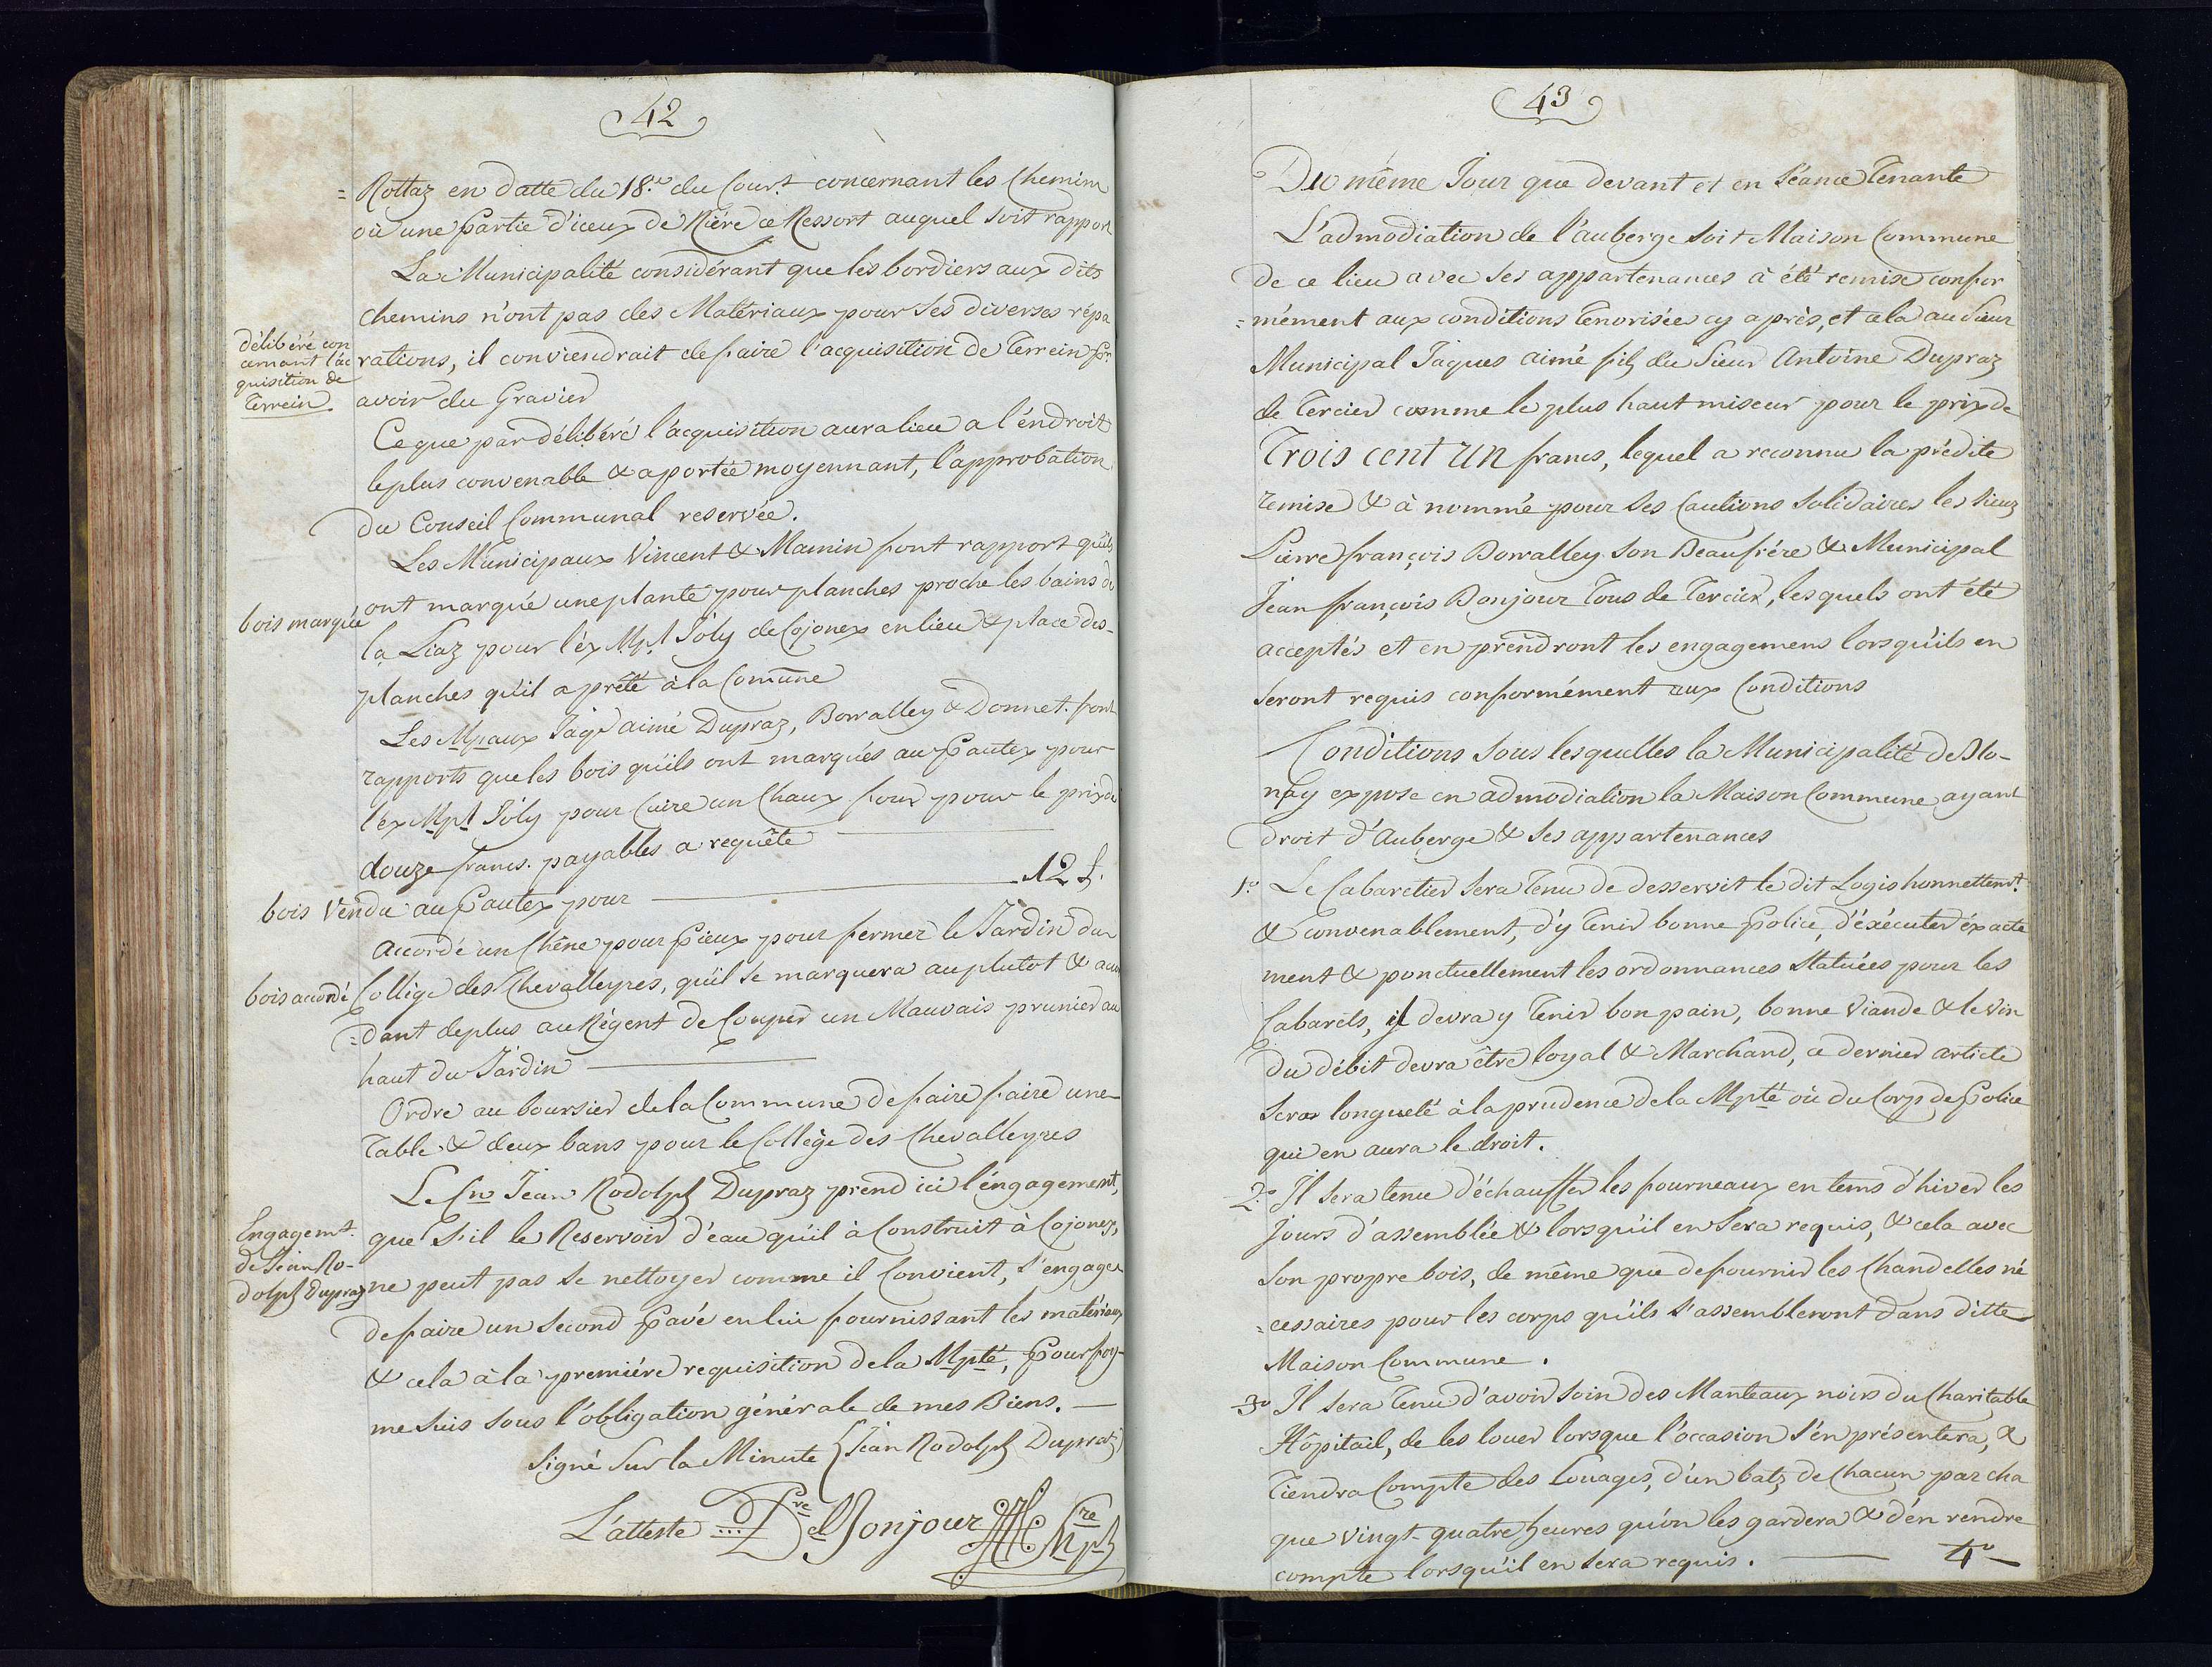 42
= Rottaz en datte du 18.e du Cour.t concernant les Chemins
ou une Partie d'iceux de Riére ce Ressort auquel soit rapport
La Municipalité considérant que les bordiers aux dits
chemins n'ont pas des Matériaux pour ses diverses répa
délibéré con
cernant l'ac
quisition de
Terrein.
rations, il conviendrait de faire l'acquisition de Terrein pr.
avoir du Gravier
Ce que par délibéré l'acquisition aura lieu a l'éndroit
le plus convenable & a portée moyennant, l'approbation
du Conseil Communal reservée.
Les Municipaux Vincent & Mamin font rapport qu'ils
bois marqué
ont marqué une plante pour planches proche les bains de
la Liaz pour l'éx Mpl Joly de Cojonex en lieu & place des
planches qu'il a prêté à la Comune
Les Mpaux Jaqs aimé Dupraz, Bonvalley & Donnet. font
rapports que les bois qu'ils ont marqués au Pautex pour
l'ex Mpl Joly pour Cuire un Chaux four pour le prix de
douze francs. payables a requête
bois Vendu au Pautex pour 12 f.
Accordé un Chêne pour Pieux pour fermer le Jardin du
bois accordé
Collége des Chevalleyres, qu'il se marquera au plutot & accor
= dant de plus au Régent de Couper un Mauvais prunier au
haut du Jardin
Ordre au boursier de la Commune de faire faire une
Table & deux bans pour le Collége des Chevalleyres
Le Cn Jean Rodolph Dupraz prend ici l'éngagement,
Engagemt.
de Jean Ro-
dolph Dupraz
que s'il le Reservoir d'éau qu'il à Construit à Cojonex,
ne peut pas se nettoyer comme il Convient, s'engage
de faire un second Pavé en lui fournissant les matériaux
& cela à la premiére requisition de la Mpté, Pour foy
me suis sous l'obligation générale de mes Biens.
Signé sur la Minute (Jean Rodolph Dupraz)
L'atteste Bonjour
43
Du même Jour que devant et en Séance Tenante
L'admodiation de l'auberge soit Maison Commune
de ce lieu avec ses appartenances à été remise confor
= mément aux conditions Tenorisées cy après, et cela au Sieur
Municipal Jaques aimé fils du Sieur Antoine Dupraz
de Tercier comme le plus haut miseur pour le prix de
Trois cent un francs, lequel a reconnu la prédite
remise & à nommé pour ses Cautions solidaires les sieurs
Pierre françois Bonvalley son Beaufrére & Municipal
Jean françois Bonjour Tous de Tercier, lesquels ont été
acceptés et en prendront les engagemens lorsqu'ils en
seront requis conformément aux Conditions
Conditions sous lesquelles la Municipalité de Blo-
nay expose en admodiation la Maison Commune ayant
droit d'Auberge & ses appartenances
1.o Le Cabaretier sera Tenu de desservir le dit Logis honnettemt.
& convenablement, d'y Tenir bonne Police, d'éxécuter éxacte
ment & ponctuellement les ordonnances statuées pour les
Cabarets, il devra y Tenir bon pain, bonne viande & le vin
du débit devra être loyal & Marchand, ce dernier article
sera longueté à la prudence de la Mpté où du Corps de Police
qui en aura le droit.
2.o Il sera tenu d'échauffer les fourneaux en tems d'hiver les
jours d'assemblée & lorsqu'il en sera requis, & cela avec
son propre bois, de même que de fournir les Chandelles né
= cessaires pour les corps qu'ils s'assembleront dans ditte
Maison Commune.
3o Il sera Tenu d'avoir soin des Manteaux noirs du Charitable
Hôpitail, de les louer lorsque l'occasion s'en présentera, &
Tiendra Compte des Louages, d'un batz de Chacun par cha
que vingt-quatre heures qu'on les gardera & d'én rendre
compte lorsqu'il en sera requis. 4.o